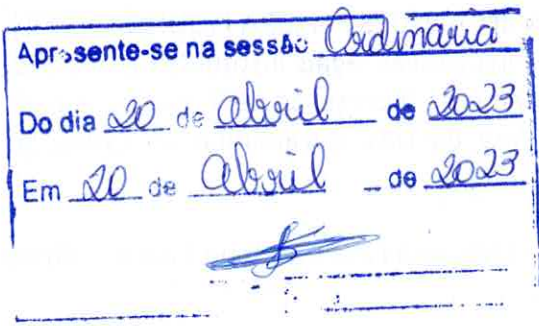 Apresente-se na sessão Ordinaria
Do dia 20 de abril de 2023
Em 20 de abril de 2023